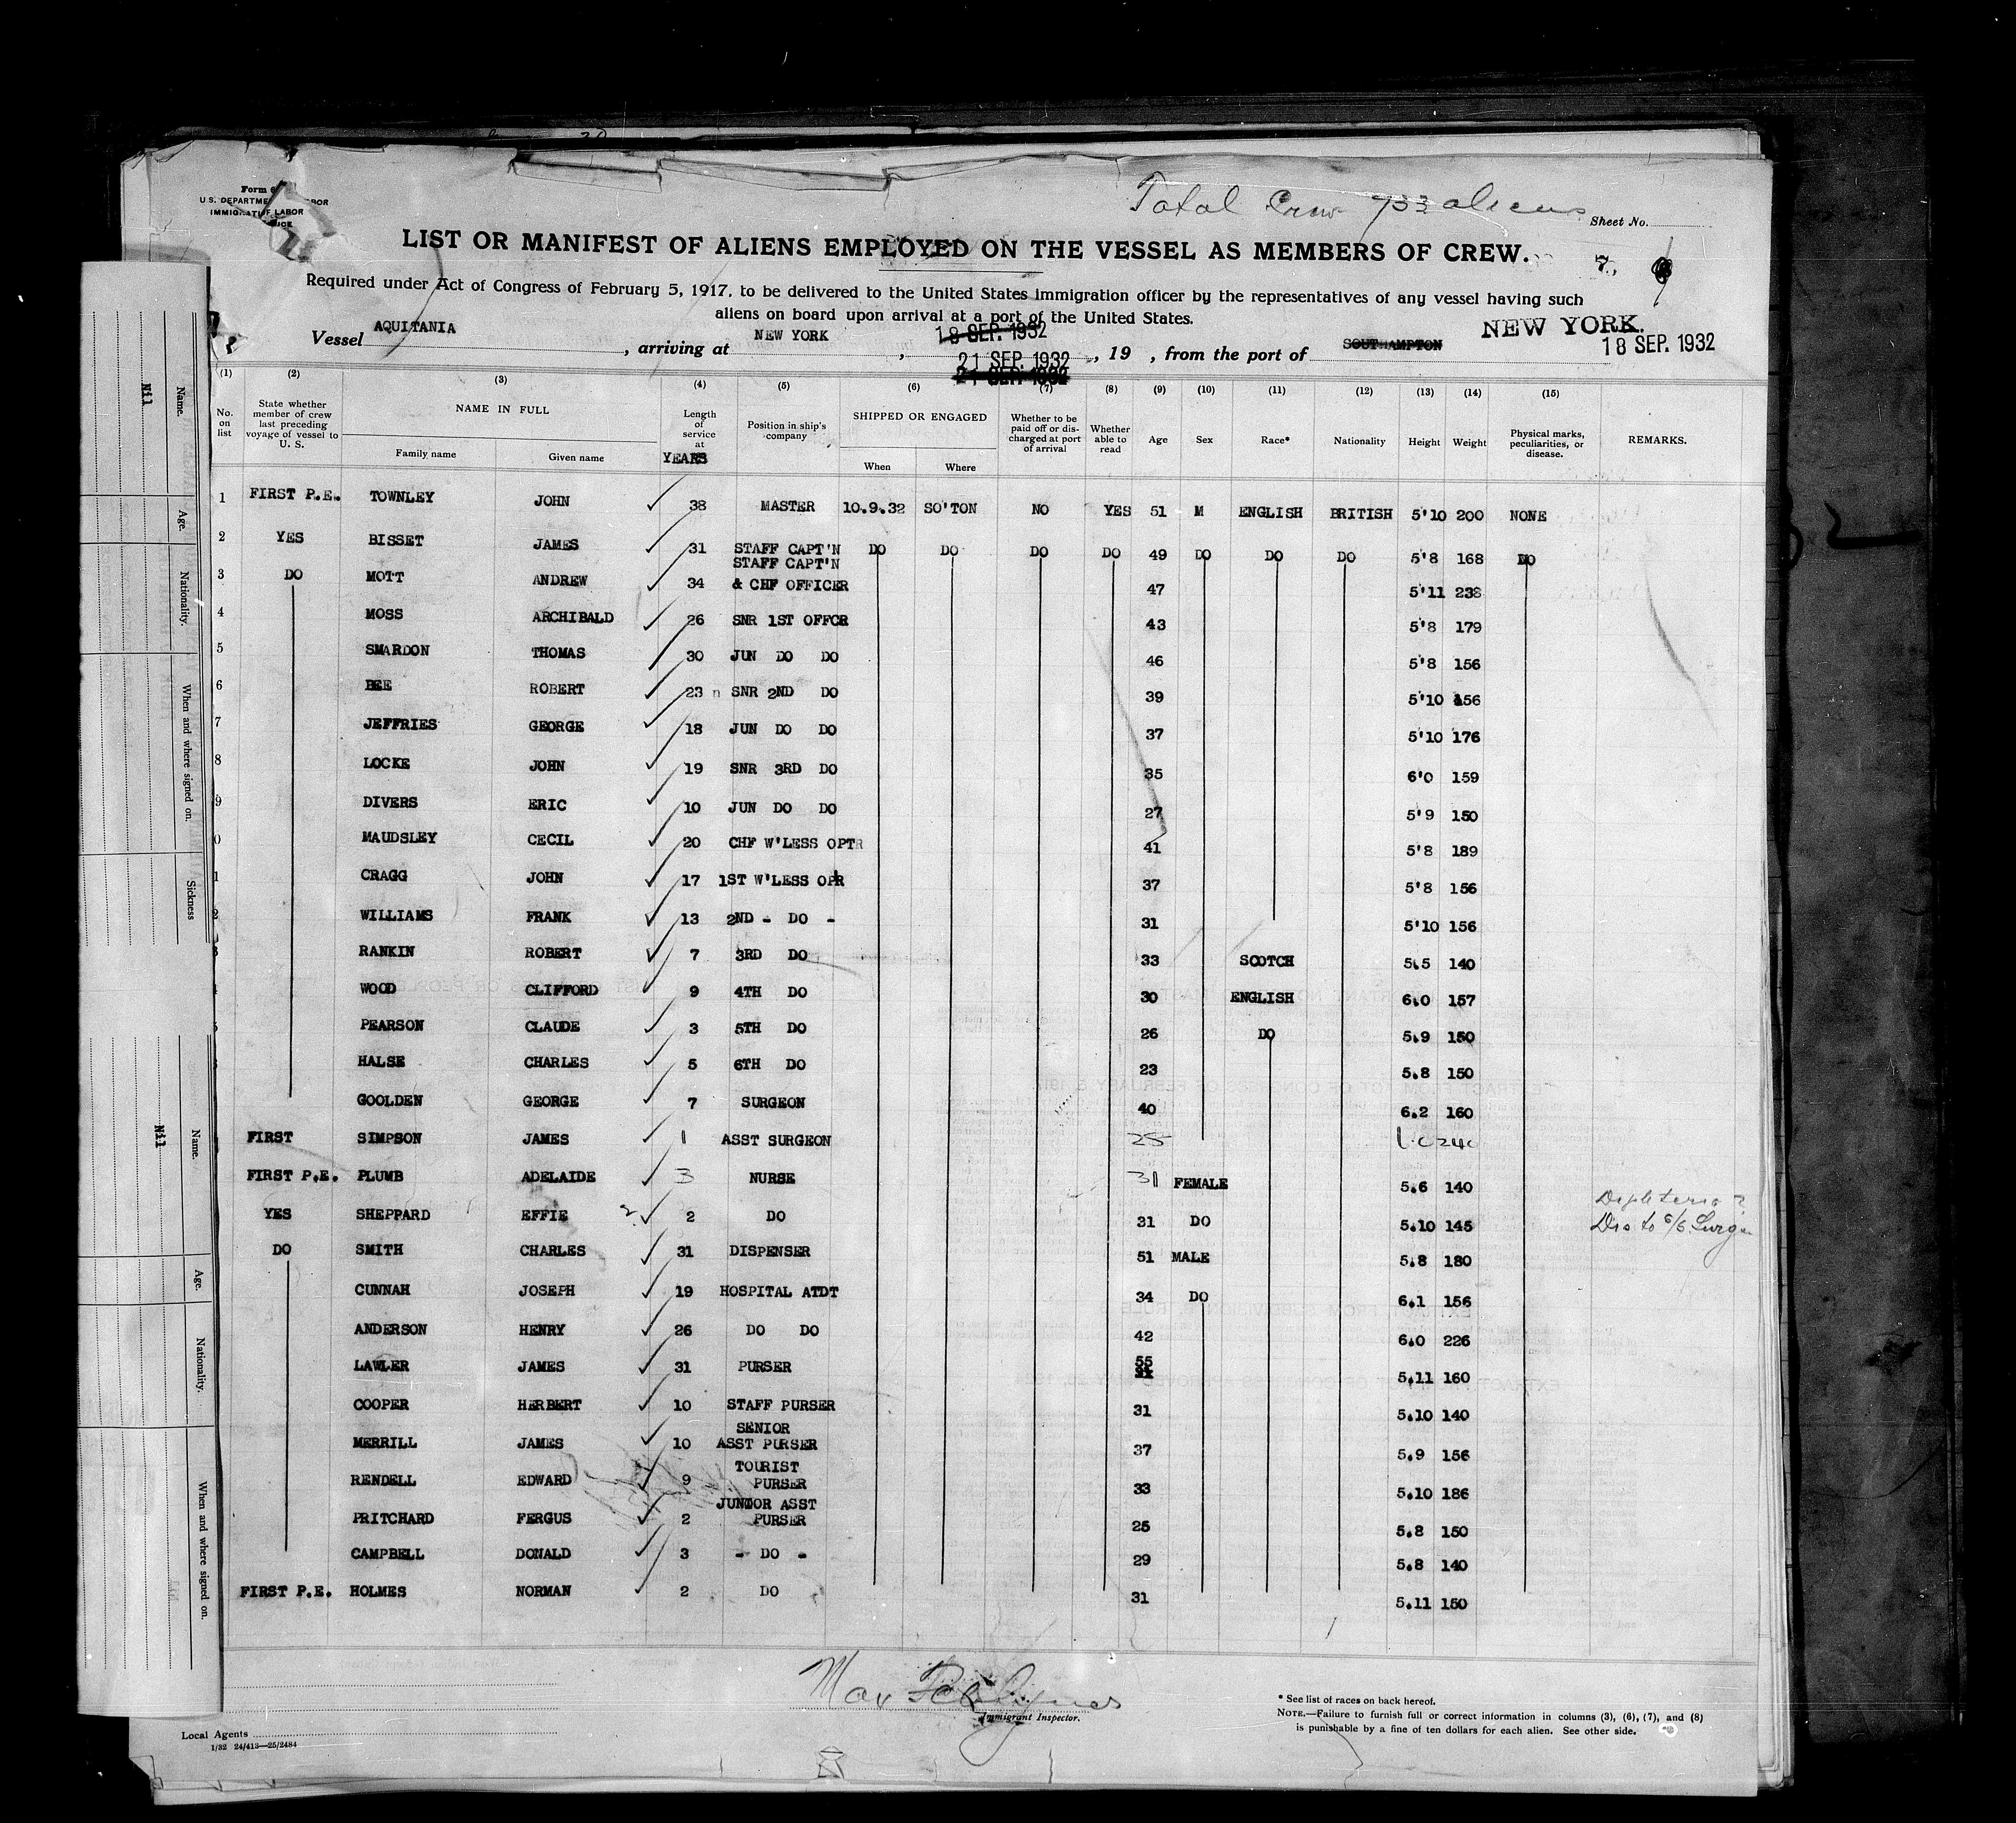 Total Crew 733 aliens
Form 6
U.S. DEPARTMENT LABOR
LABOR
Sheet No.
LIST OR MANIFEST OF ALIENS EMPLOYED ON THE VESSEL AS MEMBERS OF CREW.
7,
Required under Act of Congress of February 5, 1917, to be delivered to the United States immigration officer by the representatives of any vessel having such
aliens on board upon arrival at a port of the United States.
Vessel AQUITANIA, arriving at NEW YORK, 18 SEP. 1932 21 SEP. 1932 21 SEP. 1932, 19 , from the port of SOUTHAMPTON NEW YORK. 18 SEP. 1932
(1) (2) (3) (4) (5) (6) (7) (8) (9) (10) (11) (12) (13) (14) (15)
No. on list
State whether member of crew last preceding voyage of vessel to U. S.
NAME IN FULL
Family name
Given name
Length of service at YEARS
Position in ship's company
SHIPPED OR ENGAGED
When
Where
Whether to be paid off or discharged at port of arrival
Whether able to read
Age
Sex
Race*
Nationality
Height
Weight
Physical marks, peculiarities, or disease.
REMARKS.
1 FIRST P.E. TOWNLEY JOHN 38 MASTER 10.9.32 SO'TON NO YES 51 M ENGLISH BRITISH 5'10 200 NONE
2 YES BISSET JAMES 31 STAFF CAPT'N DO DO DO DO 49 DO DO DO 5'8 168 DO
3 DO MOTT ANDREW 34 STAFF CAPT'N & CHF OFFICER 47 5'11 238
4 MOSS ARCHIBALD 26 SNR 1ST OFFCR 43 5'8 179
5 SMARDON THOMAS 30 JUN DO DO 46 5'8 156
6 BEE ROBERT 23 SNR 2ND DO 39 5'10 156
7 JEFFRIES GEORGE 18 JUN DO DO 37 5'10 176
8 LOCKE JOHN 19 SNR 3RD DO 35 6'0 159
9 DIVERS ERIC 10 JUN DO DO 27 5'9 150
0 MAUDSLEY CECIL 20 CHF W'LESS OPTR 41 5'8 189
1 CRAGG JOHN 17 1ST W'LESS OPR 37 5'8 156
2 WILLIAMS FRANK 13 2ND - DO - 31 5'10 156
3 RANKIN ROBERT 7 3RD DO 33 SCOTCH 5.5 140
WOOD CLIFFORD 9 4TH DO 30 ENGLISH 6.0 157
PEARSON CLAUDE 3 5TH DO 26 DO 5.9 150
HALSE CHARLES 5 6TH DO 23 5.8 150
GOOLDEN GEORGE 7 SURGEON 40 6.2 160
FIRST SIMPSON JAMES 1 ASST SURGEON 25
FIRST P.E. PLUMB ADELAIDE 3 NURSE 31 FEMALE 5.6 140
YES SHEPPARD EFFIE 2 2 DO 31 DO 5.10 145
DO SMITH CHARLES 31 DISPENSER 51 MALE 5.8 180
CUNNAH JOSEPH 19 HOSPITAL ATDT 34 DO 6.1 156
ANDERSON HENRY 26 DO DO 42 6.0 226
LAWLER JAMES 31 PURSER 55 5.11 160
COOPER HERBERT 10 STAFF PURSER 31 5.10 140
MERRILL JAMES 10 SENIOR ASST PURSER 37 5.9 156
RENDELL EDWARD 9 TOURIST PURSER 33 5.10 186
PRITCHARD FERGUS 2 JUNIOR ASST PURSER 25 5.8 150
CAMPBELL DONALD 3 - DO - 29 5.8 140
FIRST P.E. HOLMES NORMAN 2 DO 31 5.11 150
Immigrant Inspector.
* See list of races on back hereof.
NOTE.—Failure to furnish full or correct information in columns (3), (6), (7), and (8)
is punishable by a fine of ten dollars for each alien. See other side.
Local Agents
1/32 24/413—25/2484
Name.
Nil
Age.
Nationality.
When and where signed on.
Sickness
Name.
Nil
Age.
Nationality.
When and where signed on.